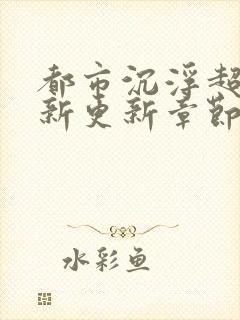 都市沉浮超
新更新章節
水彩鱼